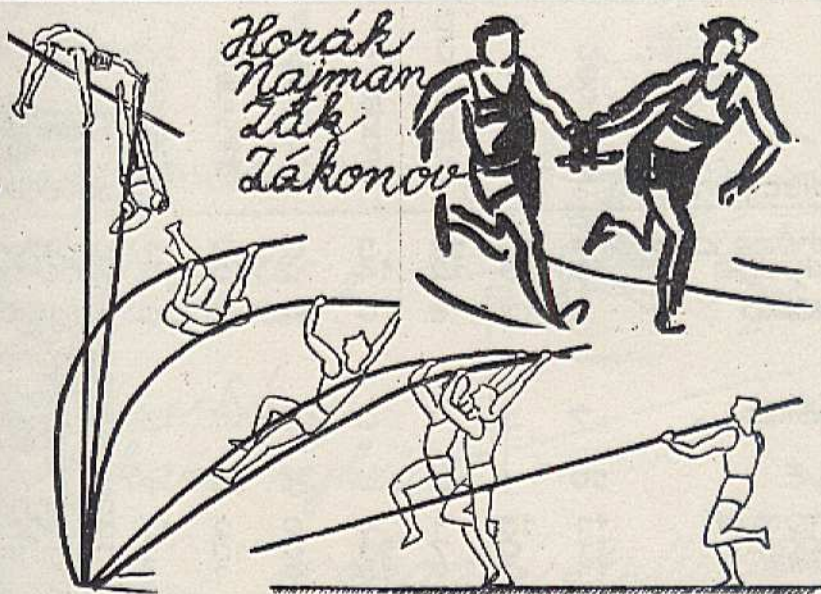 Horák
Najman
Žák
Zákonov